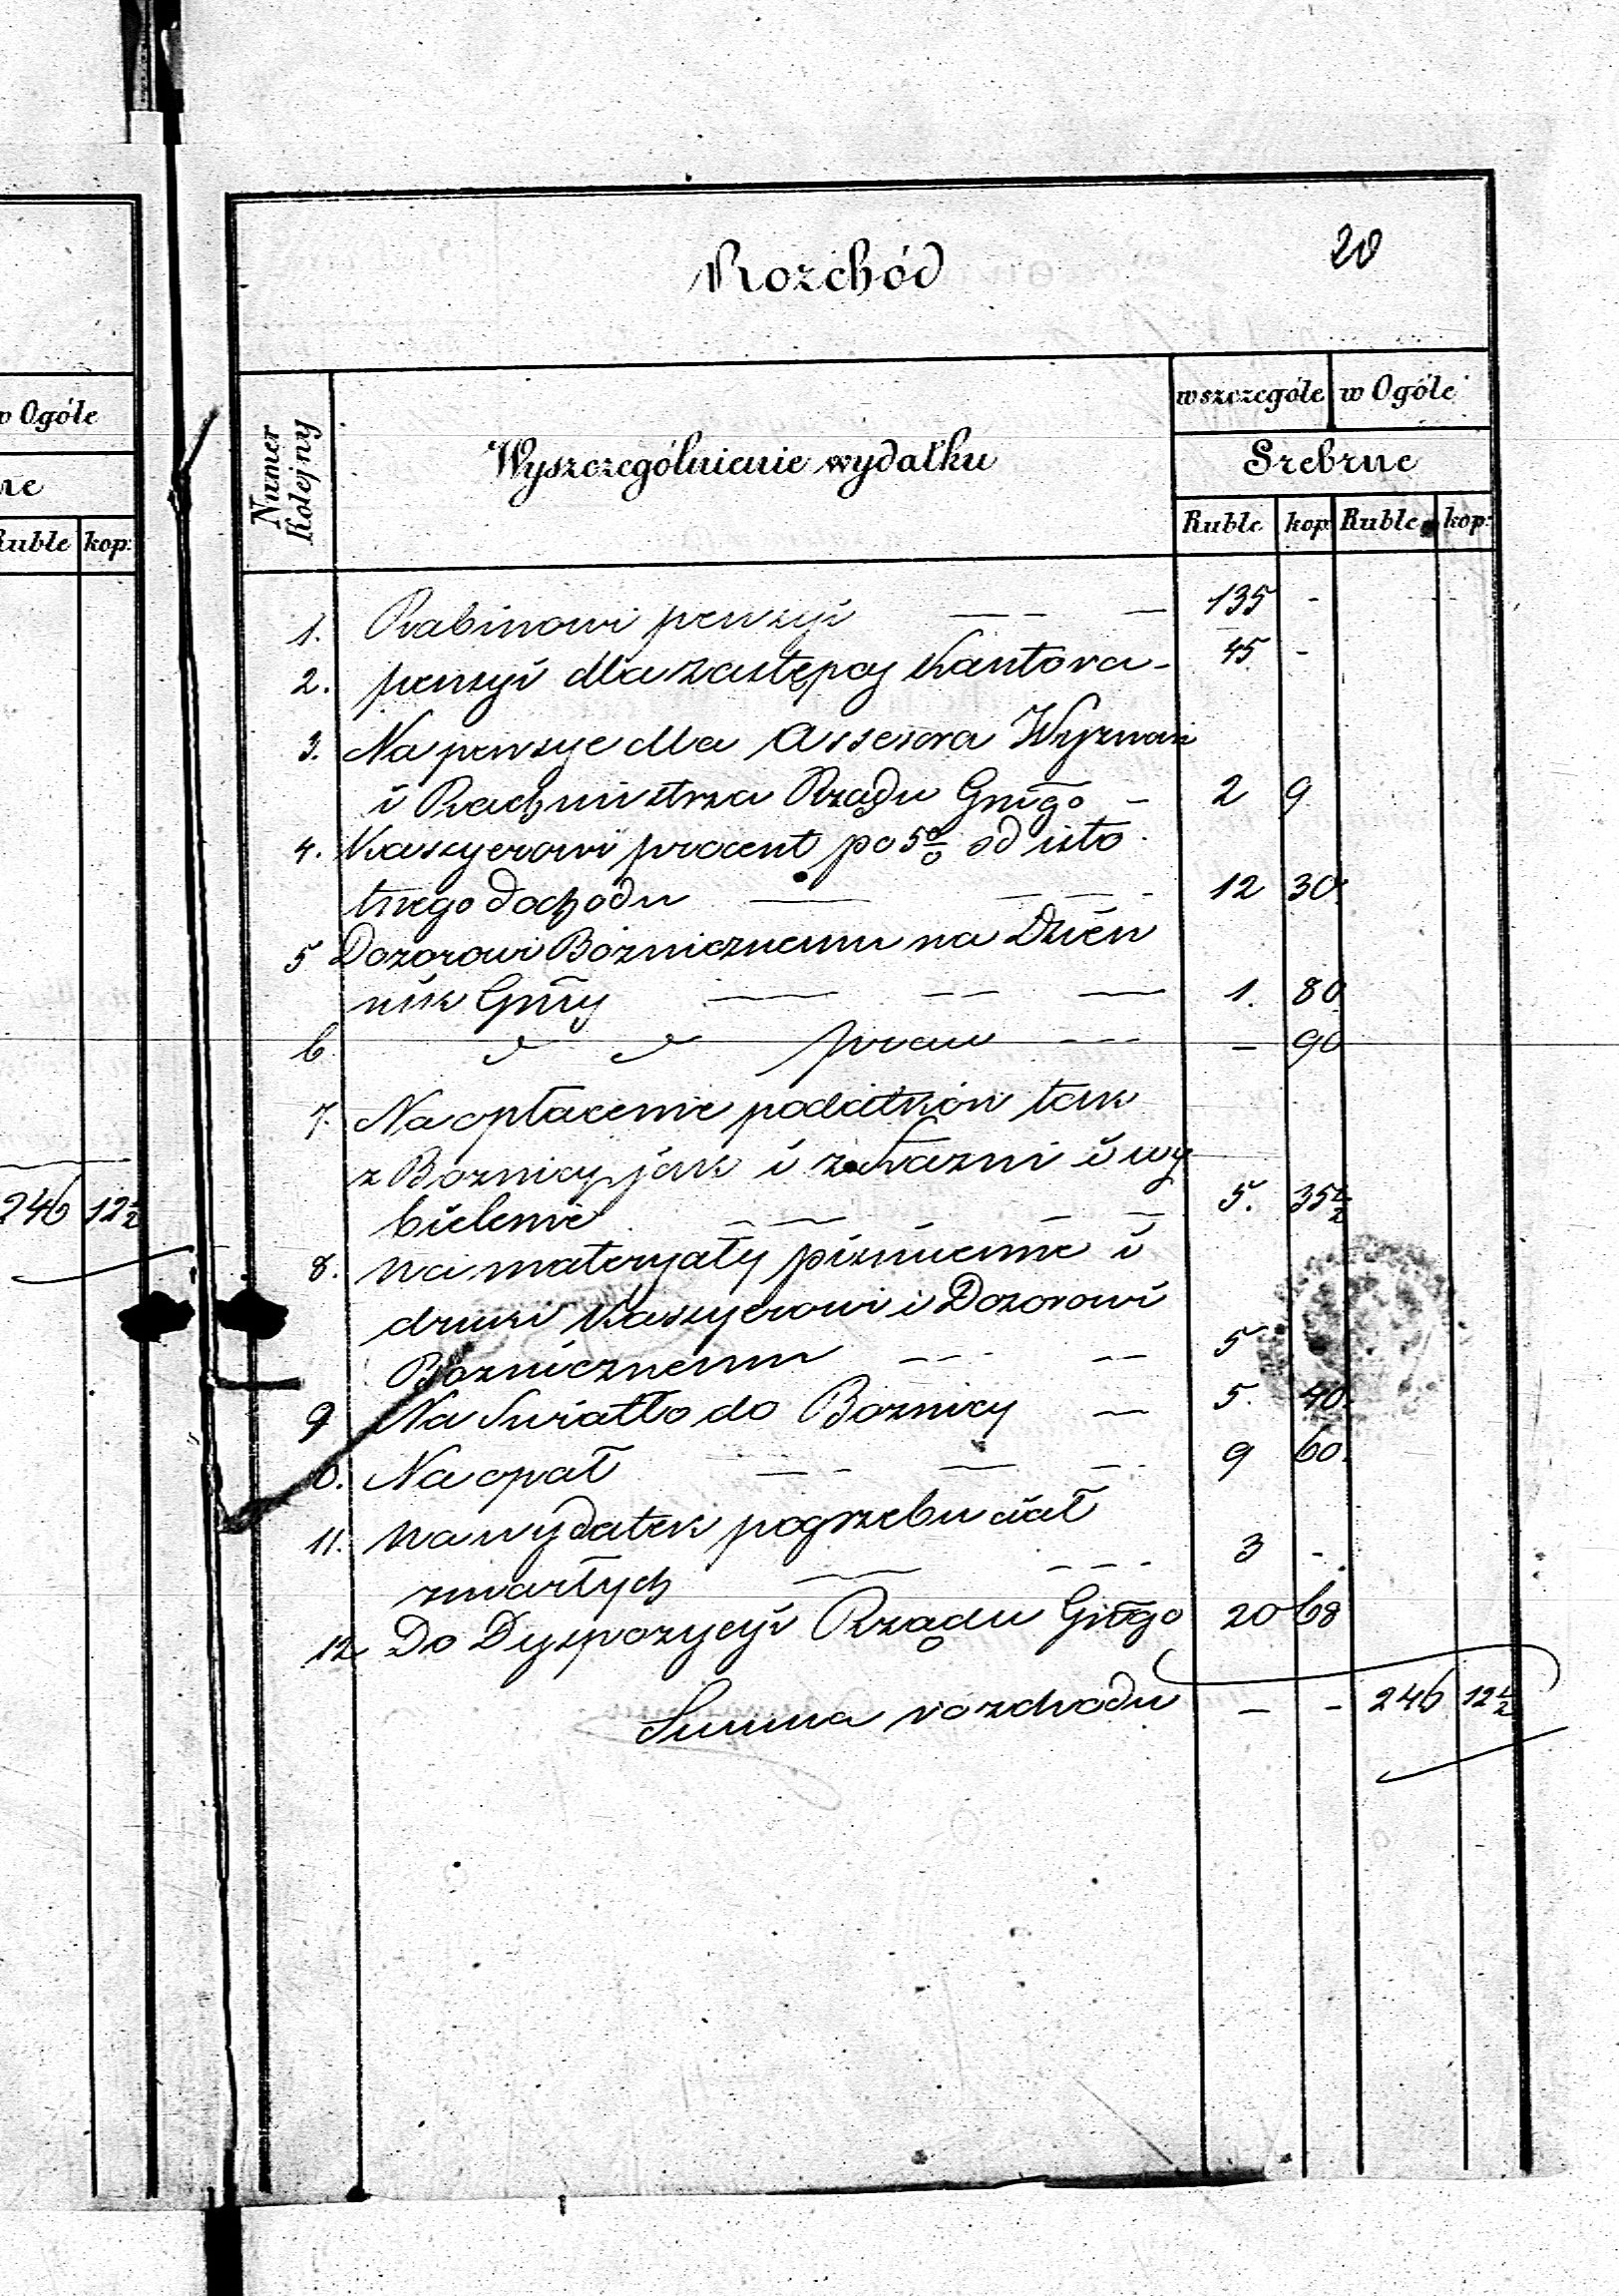 Rozchód 20
w Ogóle
ne
Ruble kop:
246 12½
Numer Kolejny
Wyszczególnienie wydatku
w szczególe w Ogóle
Srebrne
Ruble kop: Ruble kop:
1. Rabinowi pensyi — — — 135 -
2. pensyi dla zastępcy Kantora - 45 -
3. Na pensye dla Assesora Wyznań
i Rachmistrza Rządu Gnŭgo - 2 9
4. Kassyerowi procent po 5% od isto
tnego dochodu — — — 12 30.
5 Dozorowi Bożnicznemu na Dzien
nik Gnŭy — — — 1. 80
6 praw — — — — 90
7. Na opłacenie podatków tak
z Boznicy jak i z Łazni i wy
bielenie — — — 5. 35½
8. na materyały pismienne i
druki Kassyerowi i Dozorowi
Boznicznemu — — 5
9 Na Swiatło do Boznicy — 5. 40.
0. Na opał — — — 9 60.
11. na wydatek pogrzebu ciał
zmarłych — — — 3 -
12 Do Dyspozycyi Rządu Gnŭgo 20 68
Summa rozchodu — - 246 12½